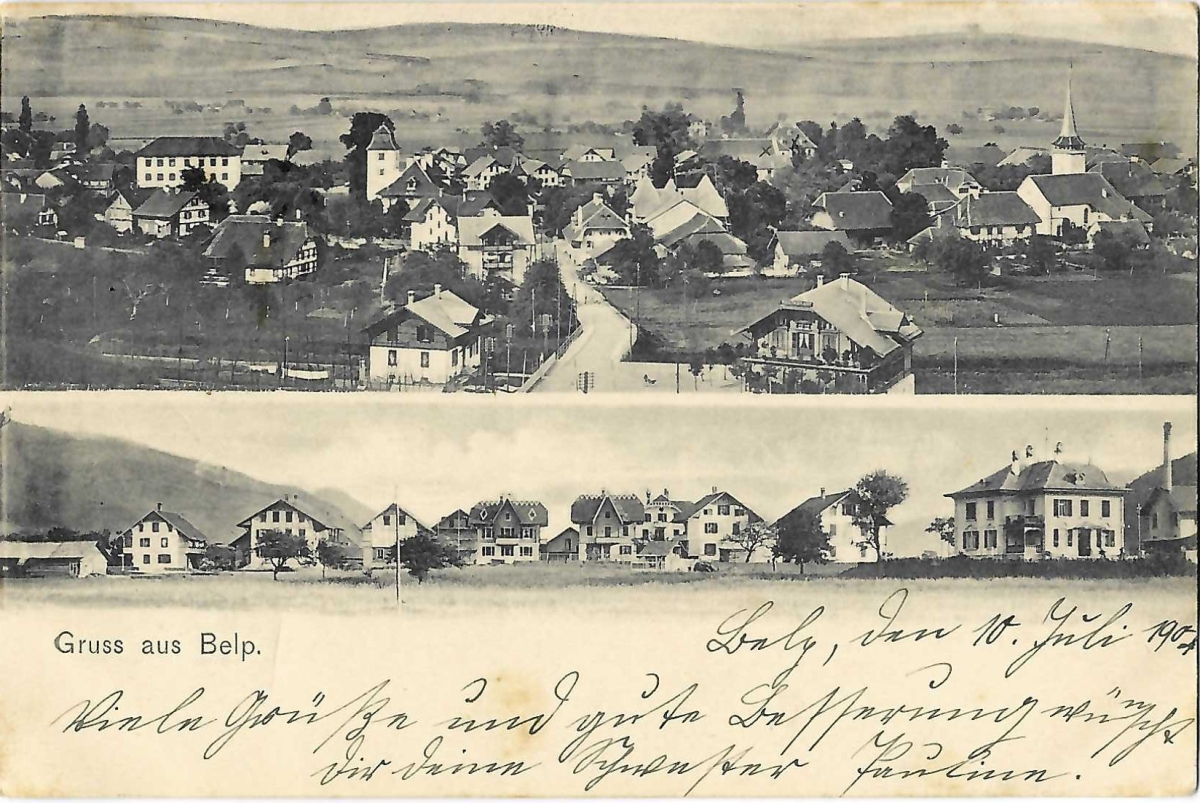 Gruss aus Belp.
Belp, den 10. Juli
Viele Grüße und gute Besserung wünscht
Dir deine Schwester Pauline.